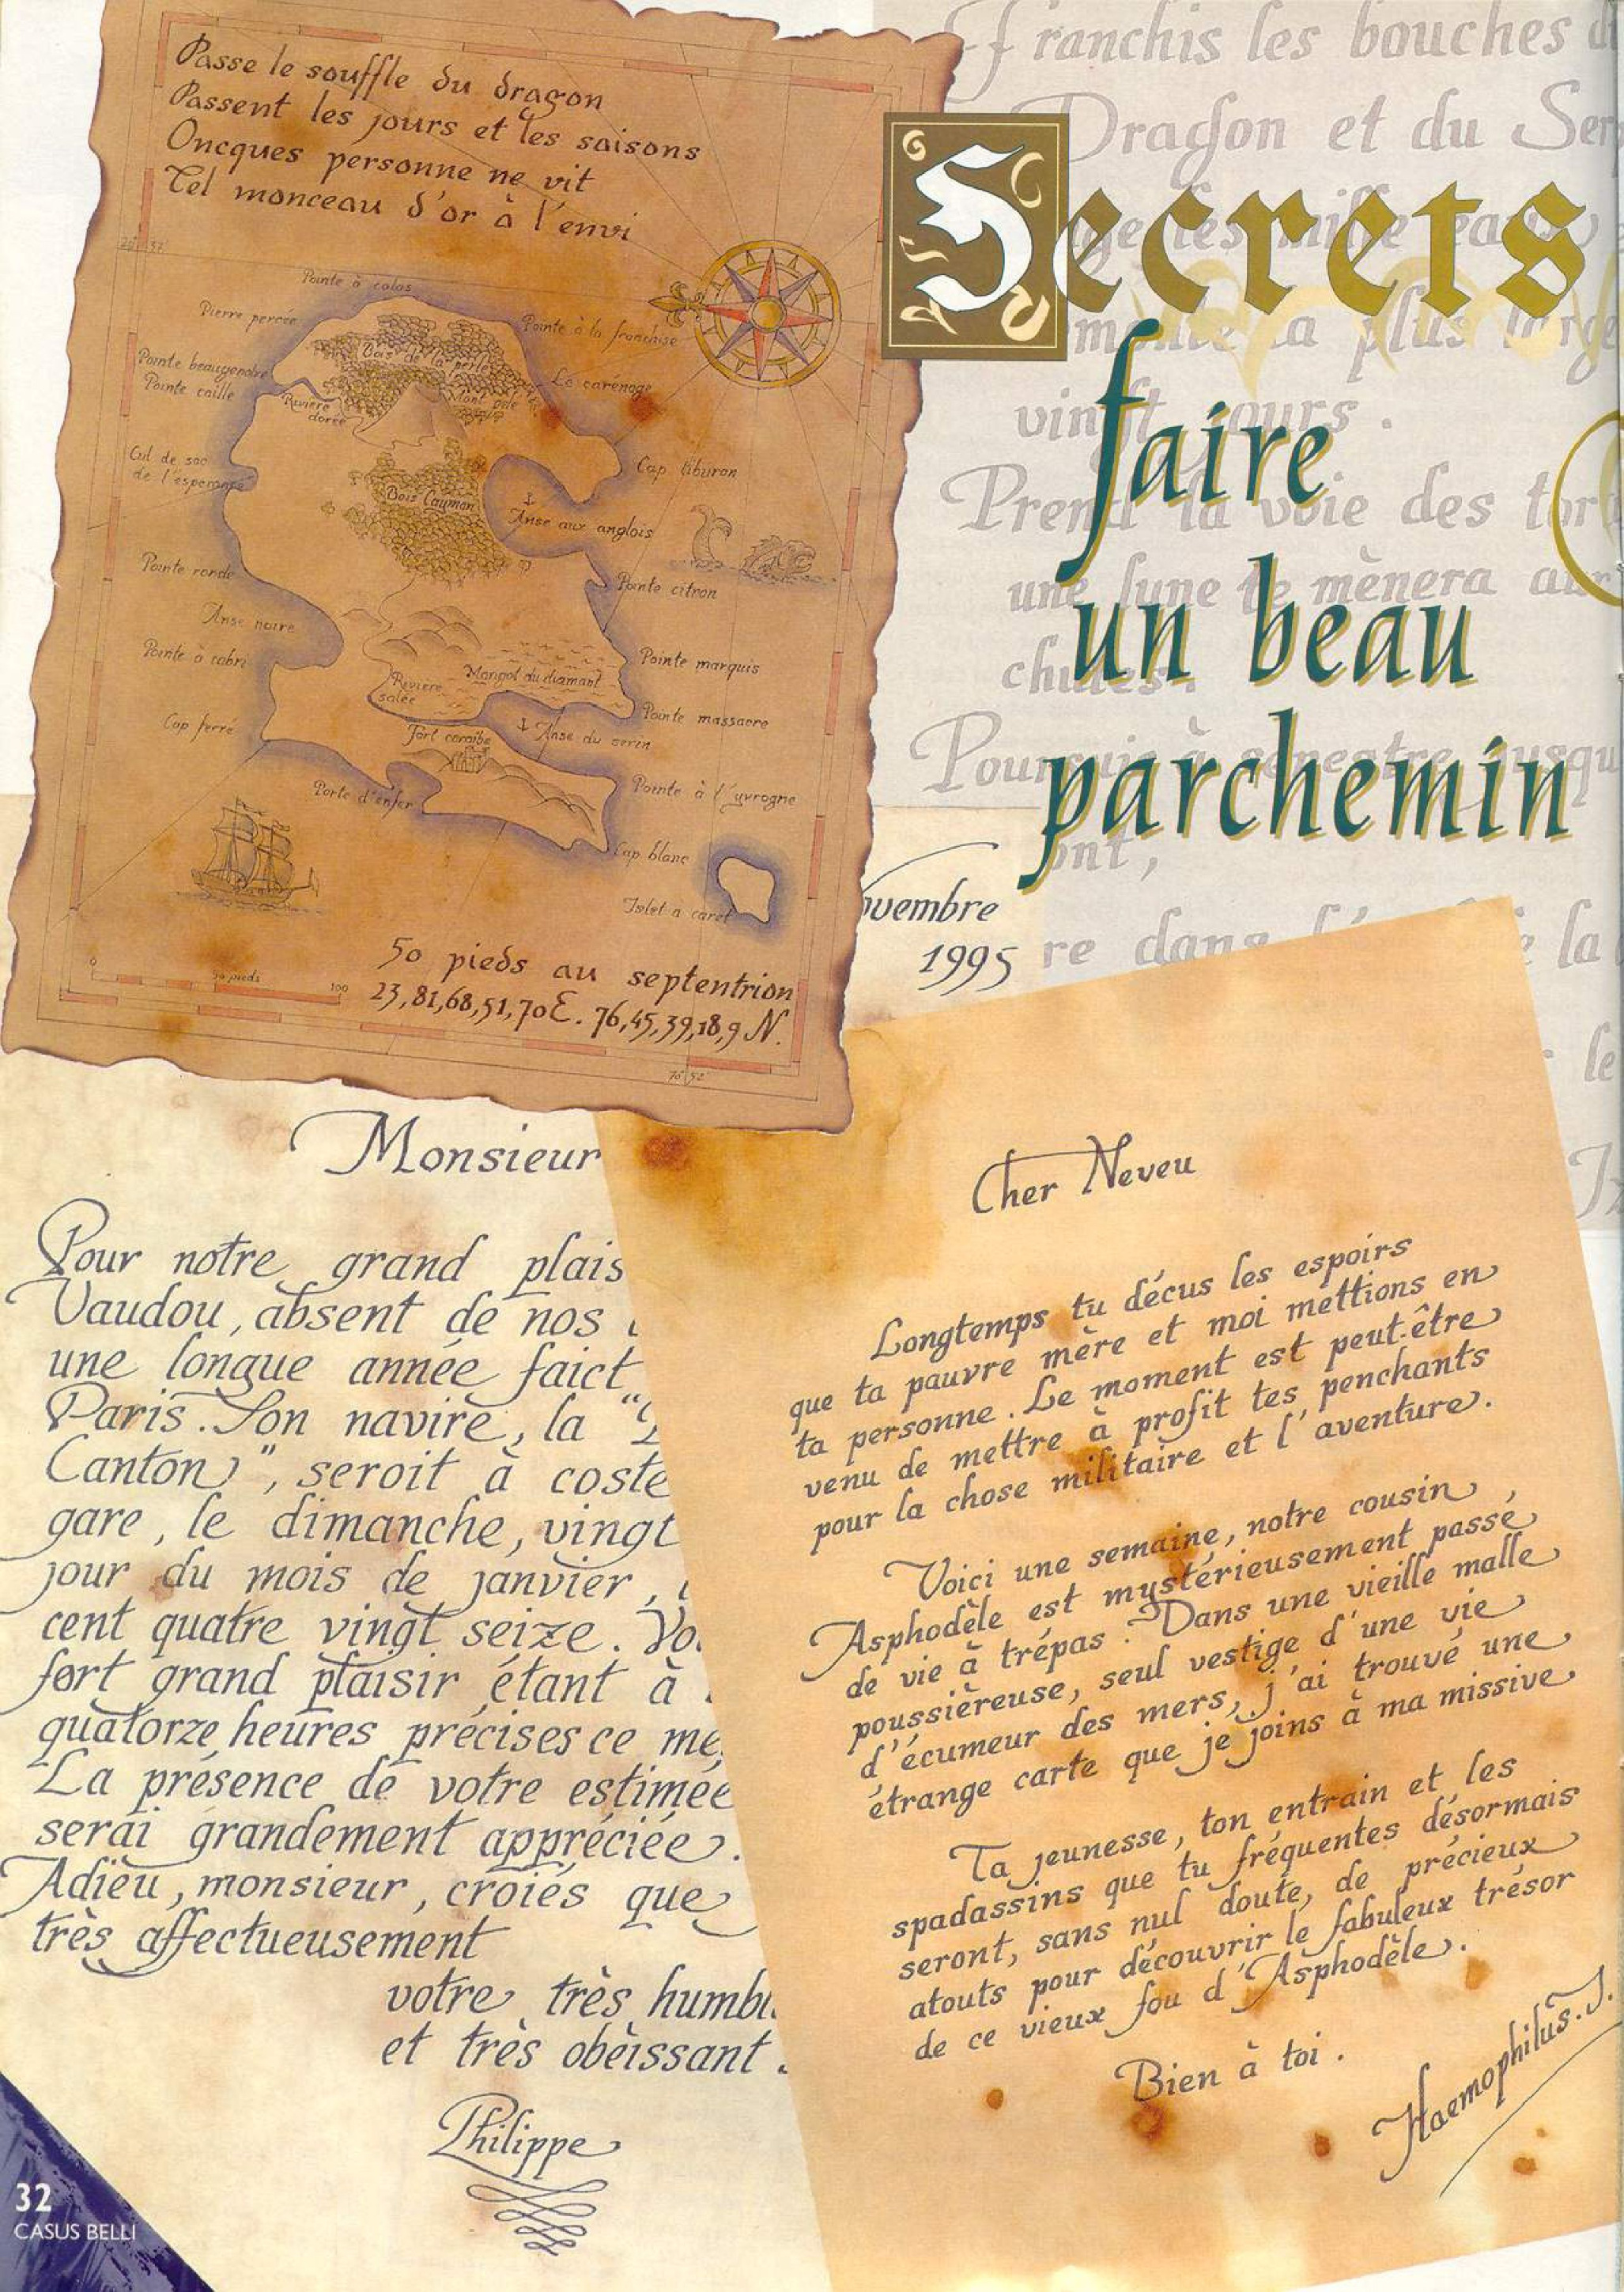 Passe le souffle du dragon
Passent les jours et les saisons
Oncques personne ne vit
Tel monceau d'or à l'envi
Pointe à colas
Pierre percée
Pointe à la franchise
Bois de la perle
Pointe beaugendre
Pointe caille
Le carénage
Mont pelé
Rivière
dorée
Cul de sac
de l'espérance
Cap tiburon
Bois Cayman
Anse aux anglois
Pointe ronde
Pointe citron
Anse noire
Pointe à cabri
Pointe marquis
Marigot du diamant
Rivière
salée
Pointe massacre
Cap ferré
Fort caraïbe
Anse du serin
Porte d'enfer
Pointe à l'yvrogne
Cap blanc
Islet à caret
50 pieds au septentrion
23,81,68,51,70 E. 76,45,39,18,9 N.
0
50 pieds
100
franchis les bouches
Dragon et du
vingt jours.
Prend la voie des
une lune te mènera
chutes.
Poursuis à senestre
ont,
la
le
Secrets
faire
un beau
parchemin
1995
Monsieur
Pour notre grand
Vaudou, absent de nos
une longue année faict
Paris. Son navire, la "
Canton", seroit à coste
gare, le dimanche, vingt
jour du mois de janvier,
cent quatre vingt seize.
fort grand plaisir étant à
quatorze heures précises ce
La présence de votre estimée
serai grandement appréciée.
Adieu, monsieur, croiés que
très affectueusement
votre très
et très obèissant.
Philippe
Cher Neveu
Longtemps tu décus les espoirs
que ta pauvre mère et moi mettions en
ta personne. Le moment est peut-être
venu de mettre à profit tes penchants
pour la chose militaire et l'aventure.
Voici une semaine, notre cousin,
Asphodèle est mystérieusement passé
de vie à trépas. Dans une vieille malle
poussièreuse, seul vestige d'une vie
d'écumeur des mers, j'ai trouvé une
étrange carte que je joins à ma missive
Ta jeunesse, ton entrain et les
spadassins que tu fréquentes désormais
seront, sans nul doute, de précieux
atouts pour découvrir le fabuleux trésor
de ce vieux fou d'Asphodèle.
Bien à toi.
Haemophilus. J.
32
CASUS BELLI